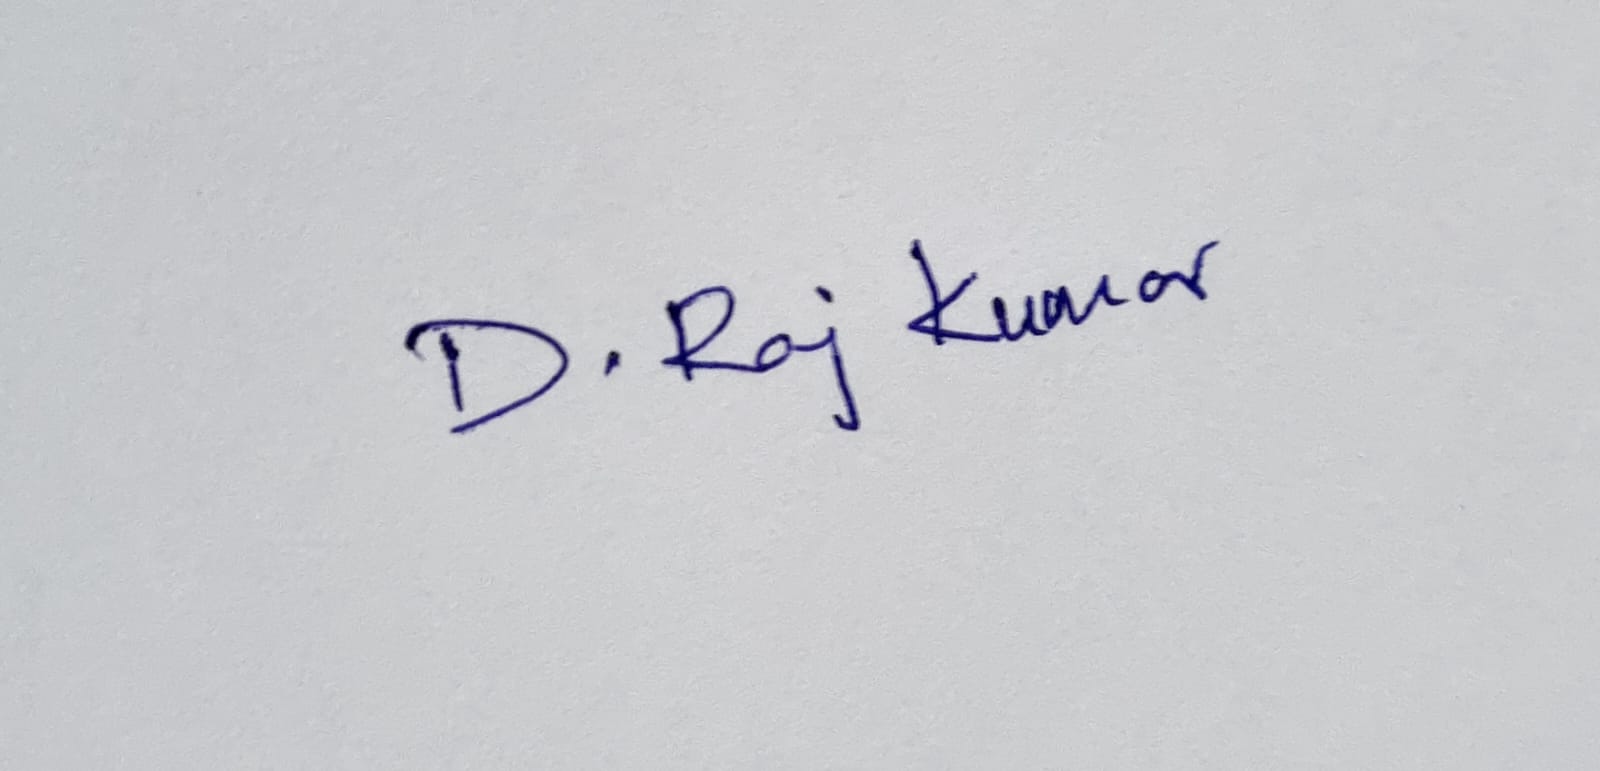 D. Raj Kumar